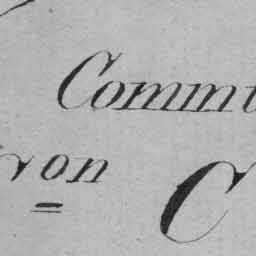 Commi
on C